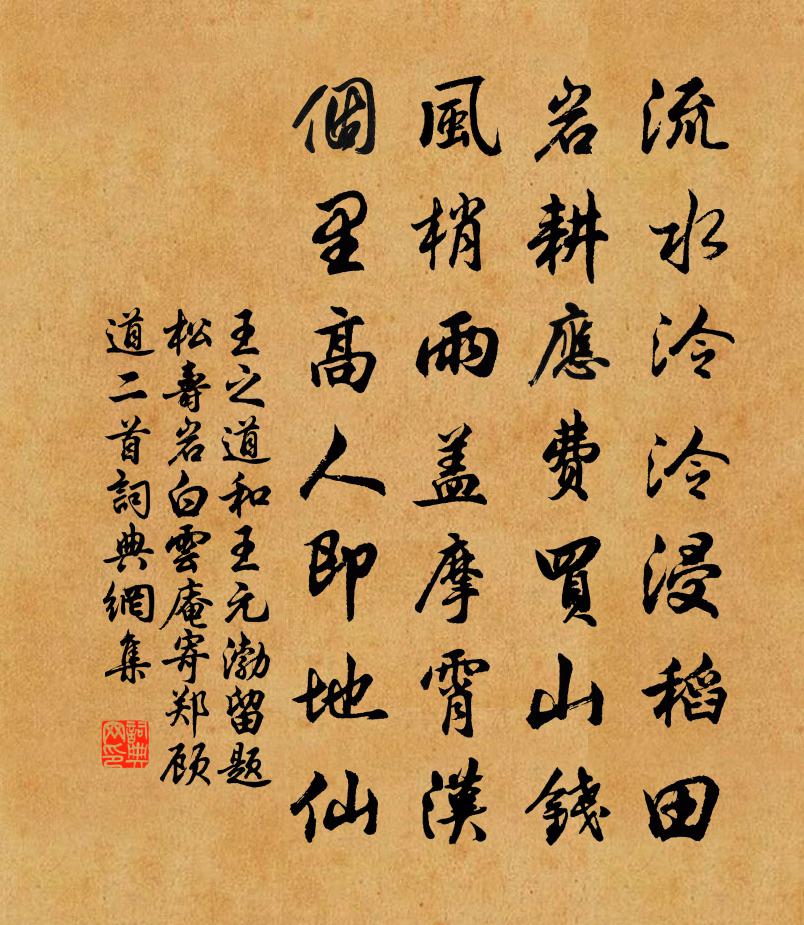 流水泠泠浸稻田
岩耕應費買山錢
風梢雨蓋摩霄漢
個里高人即地仙
王之道和王元渤留題
松壽岩白雲庵寄郑顾
道二首詞典網集
詞典網印